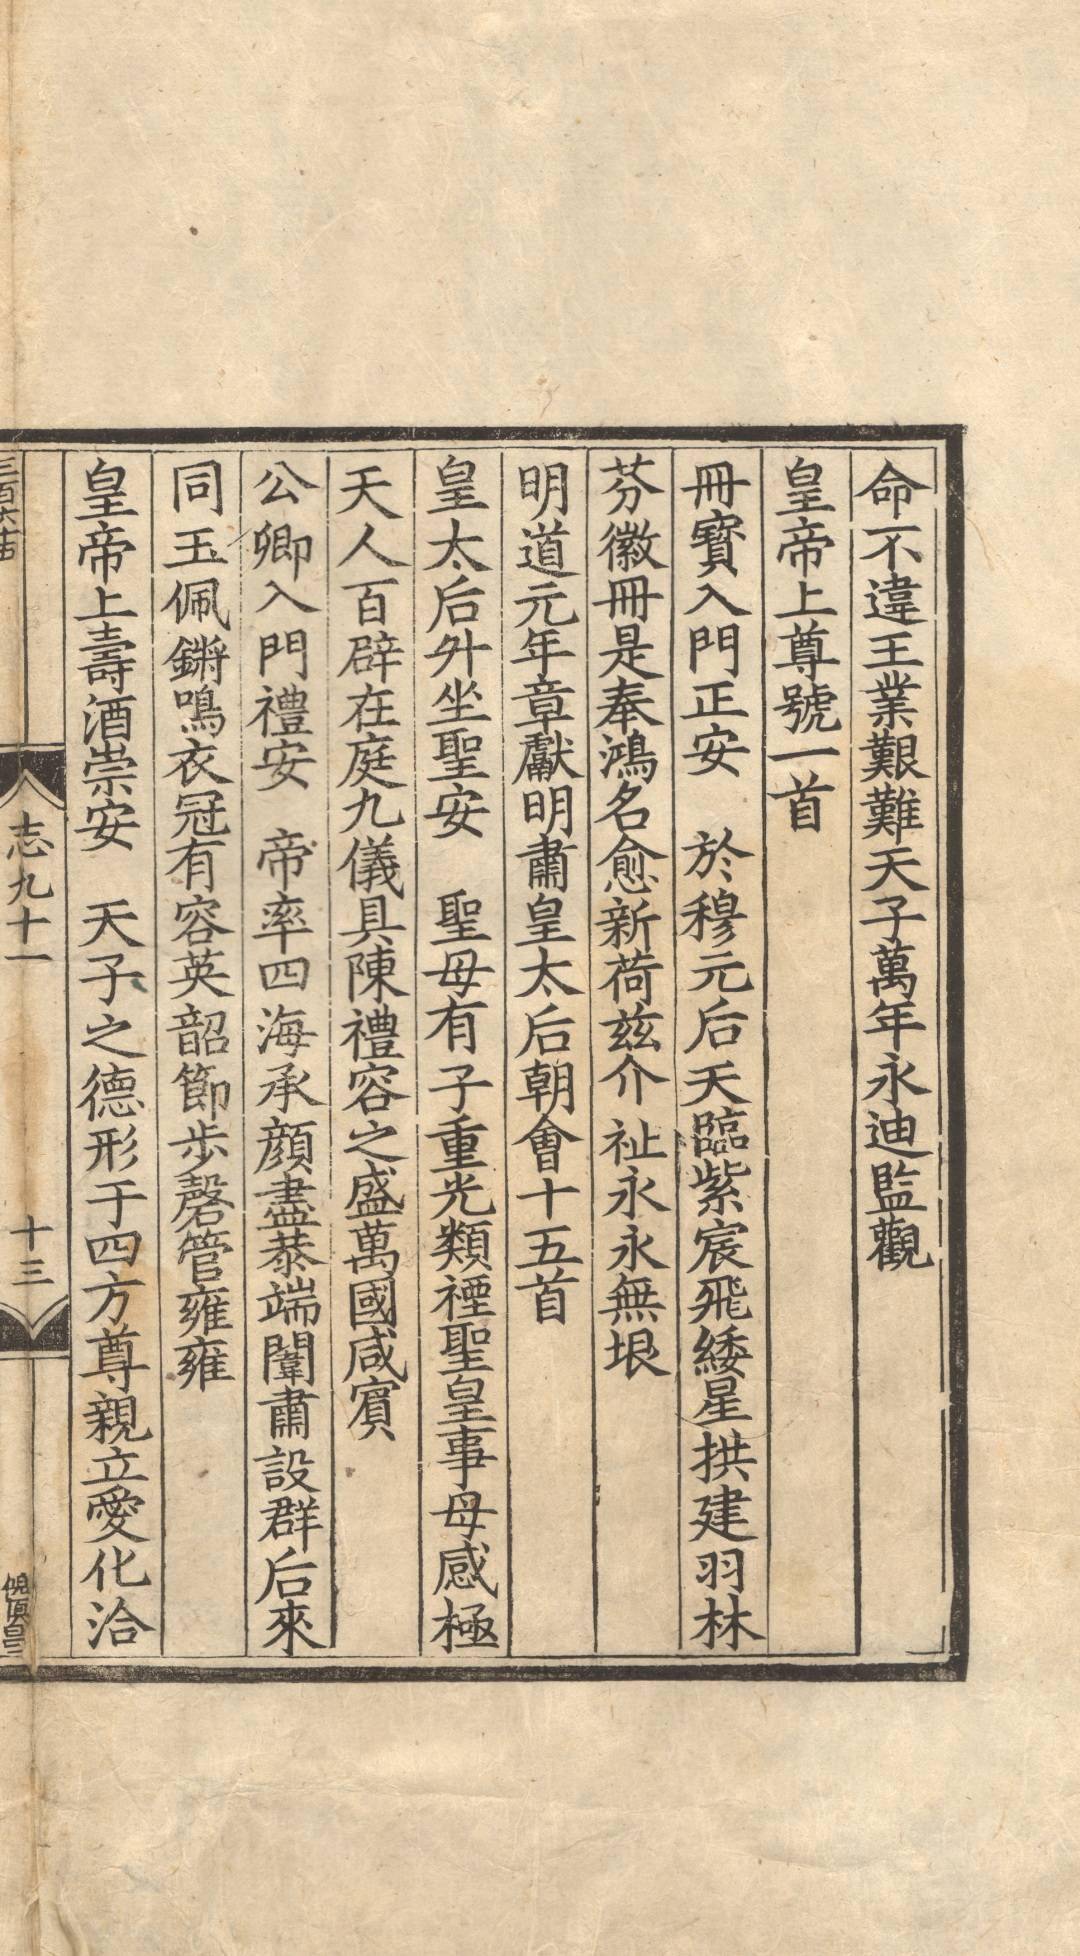 命不違王業艱難天子萬年永迪監觀
皇帝上尊號一首
冊寶入門正安　於穆元后天臨紫宸飛緌星拱建羽林
芬徽冊是奉鴻名愈新荷兹介祉永永無垠
明道元年章獻明肅皇太后朝會十五首
皇太后升坐聖安　聖母有子重光類禋聖皇事母感極
天人百辟在庭九儀具陳禮容之盛萬國咸賓
公卿入門禮安　帝率四海承顔盡恭端闈肅設群后來
同玉佩鏘鳴衣冠有容英韶節步磬管雍雍
皇帝上壽酒崇安　天子之德形于四方尊親立愛化洽
志九十一
十三